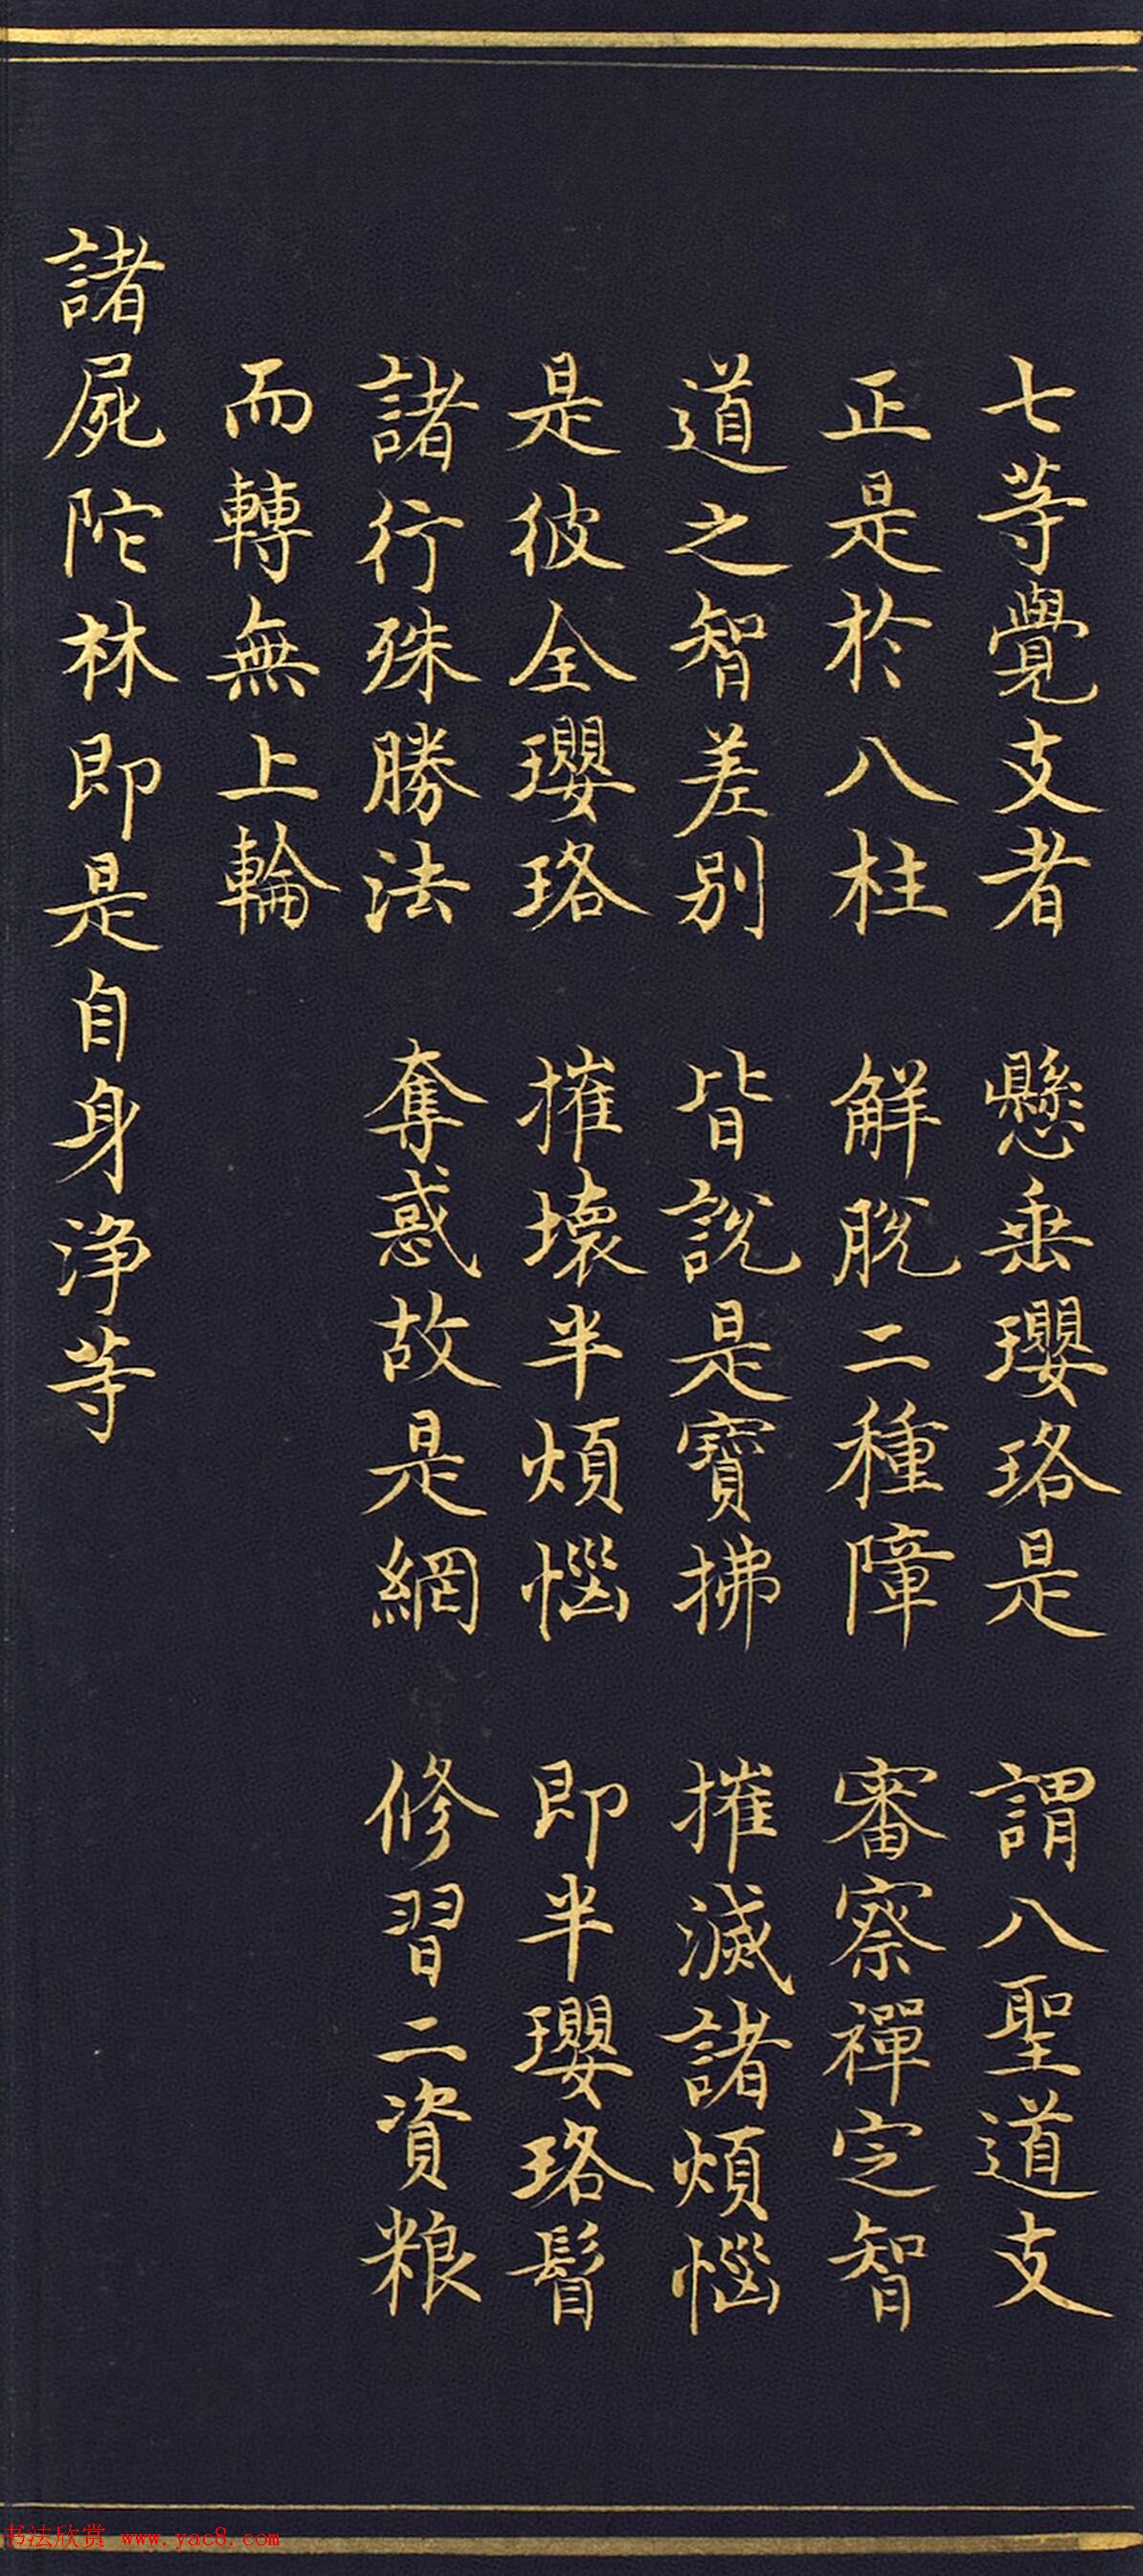 七等覺支者 懸垂瓔珞是 謂八聖道支
正是於八柱 解脫二種障 審察禪定智
道之智差別 皆說是寶拂 摧滅諸煩惱
是彼全瓔珞 摧壞半煩惱 即半瓔珞鬘
諸行殊勝法 奪惑故是網 修習二資粮
而轉無上輪
諸屍陀林即是自身净等
书法欣赏 www.yac8.com